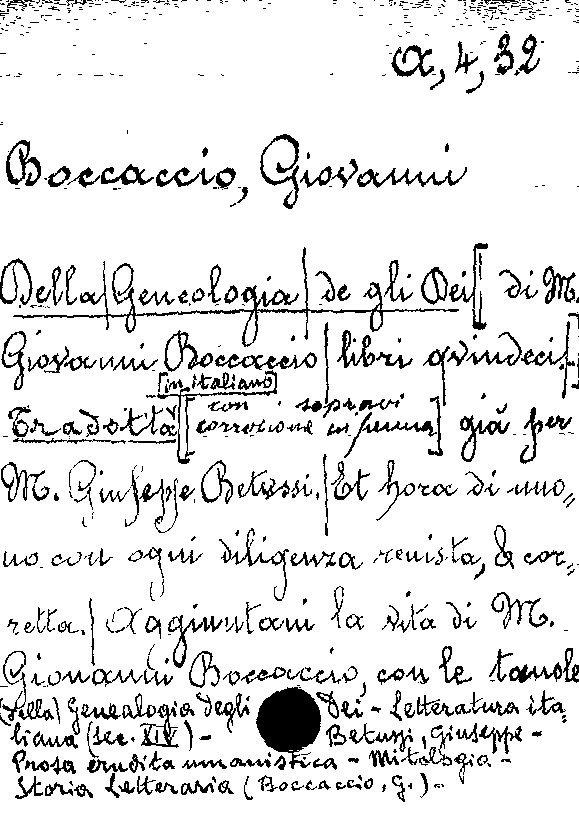 α, 4, 32
Boccaccio, Giovanni
Della|Geneologia|de gli Dei[ di M.
Giovanni Boccaccio|libri qvindeci.]
[in italiano]
Tradottà[con sopravi correzione in penna] già per
M. Giuseppe Betussi.|Et hora di nuo=
uo con ogni diligenza reuista, & cor=
retta.|Aggiuntaui la vita di M.
Giouanni Boccaccio, con le tauole
(Della) Genealogia degli Dei - Letteratura ita=
liana (sec. XIV) - Betussi, Giuseppe -
Prosa erudita umanistica - Mitologia -
Storia Letteraria (Boccaccio, G.) -